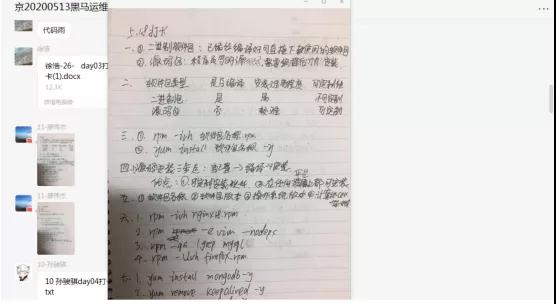 京20200513黑马运维
代码雨
徐浩
徐浩-26- day03打
卡(1).docx
12.3K
11-廖伟杰
11-廖伟杰
10 孙骏骐
10 孙骏骐day04打
txt
5.18打卡
一、① 二进制软件包：已经经编译好可直接下载使用的软件包
② 源码包：程序员写的源
二、 软件包类型 是否编译 安装过程难易程度 可定制性
二进制包 是 易 不可定制
源码包 否 较难 可定制
三、① rpm -ivh 软件包名称.rpm
② yum install 软件包名称 -y
四、源码安装三步走：配置 → 编译 → 安装
优点：① 可定制安装 ② 在任何 都可安装
五、① 软件包名称 ② 软件包版本 ③ 操作系统
六、1. rpm -ivh nginx.rpm
2. rpm -e vim --nodeps
3. rpm -qa |grep mysql
4. rpm -Uvh firefox.rpm
七、1. yum install mongodb -y
2. yum remove keepalived -y